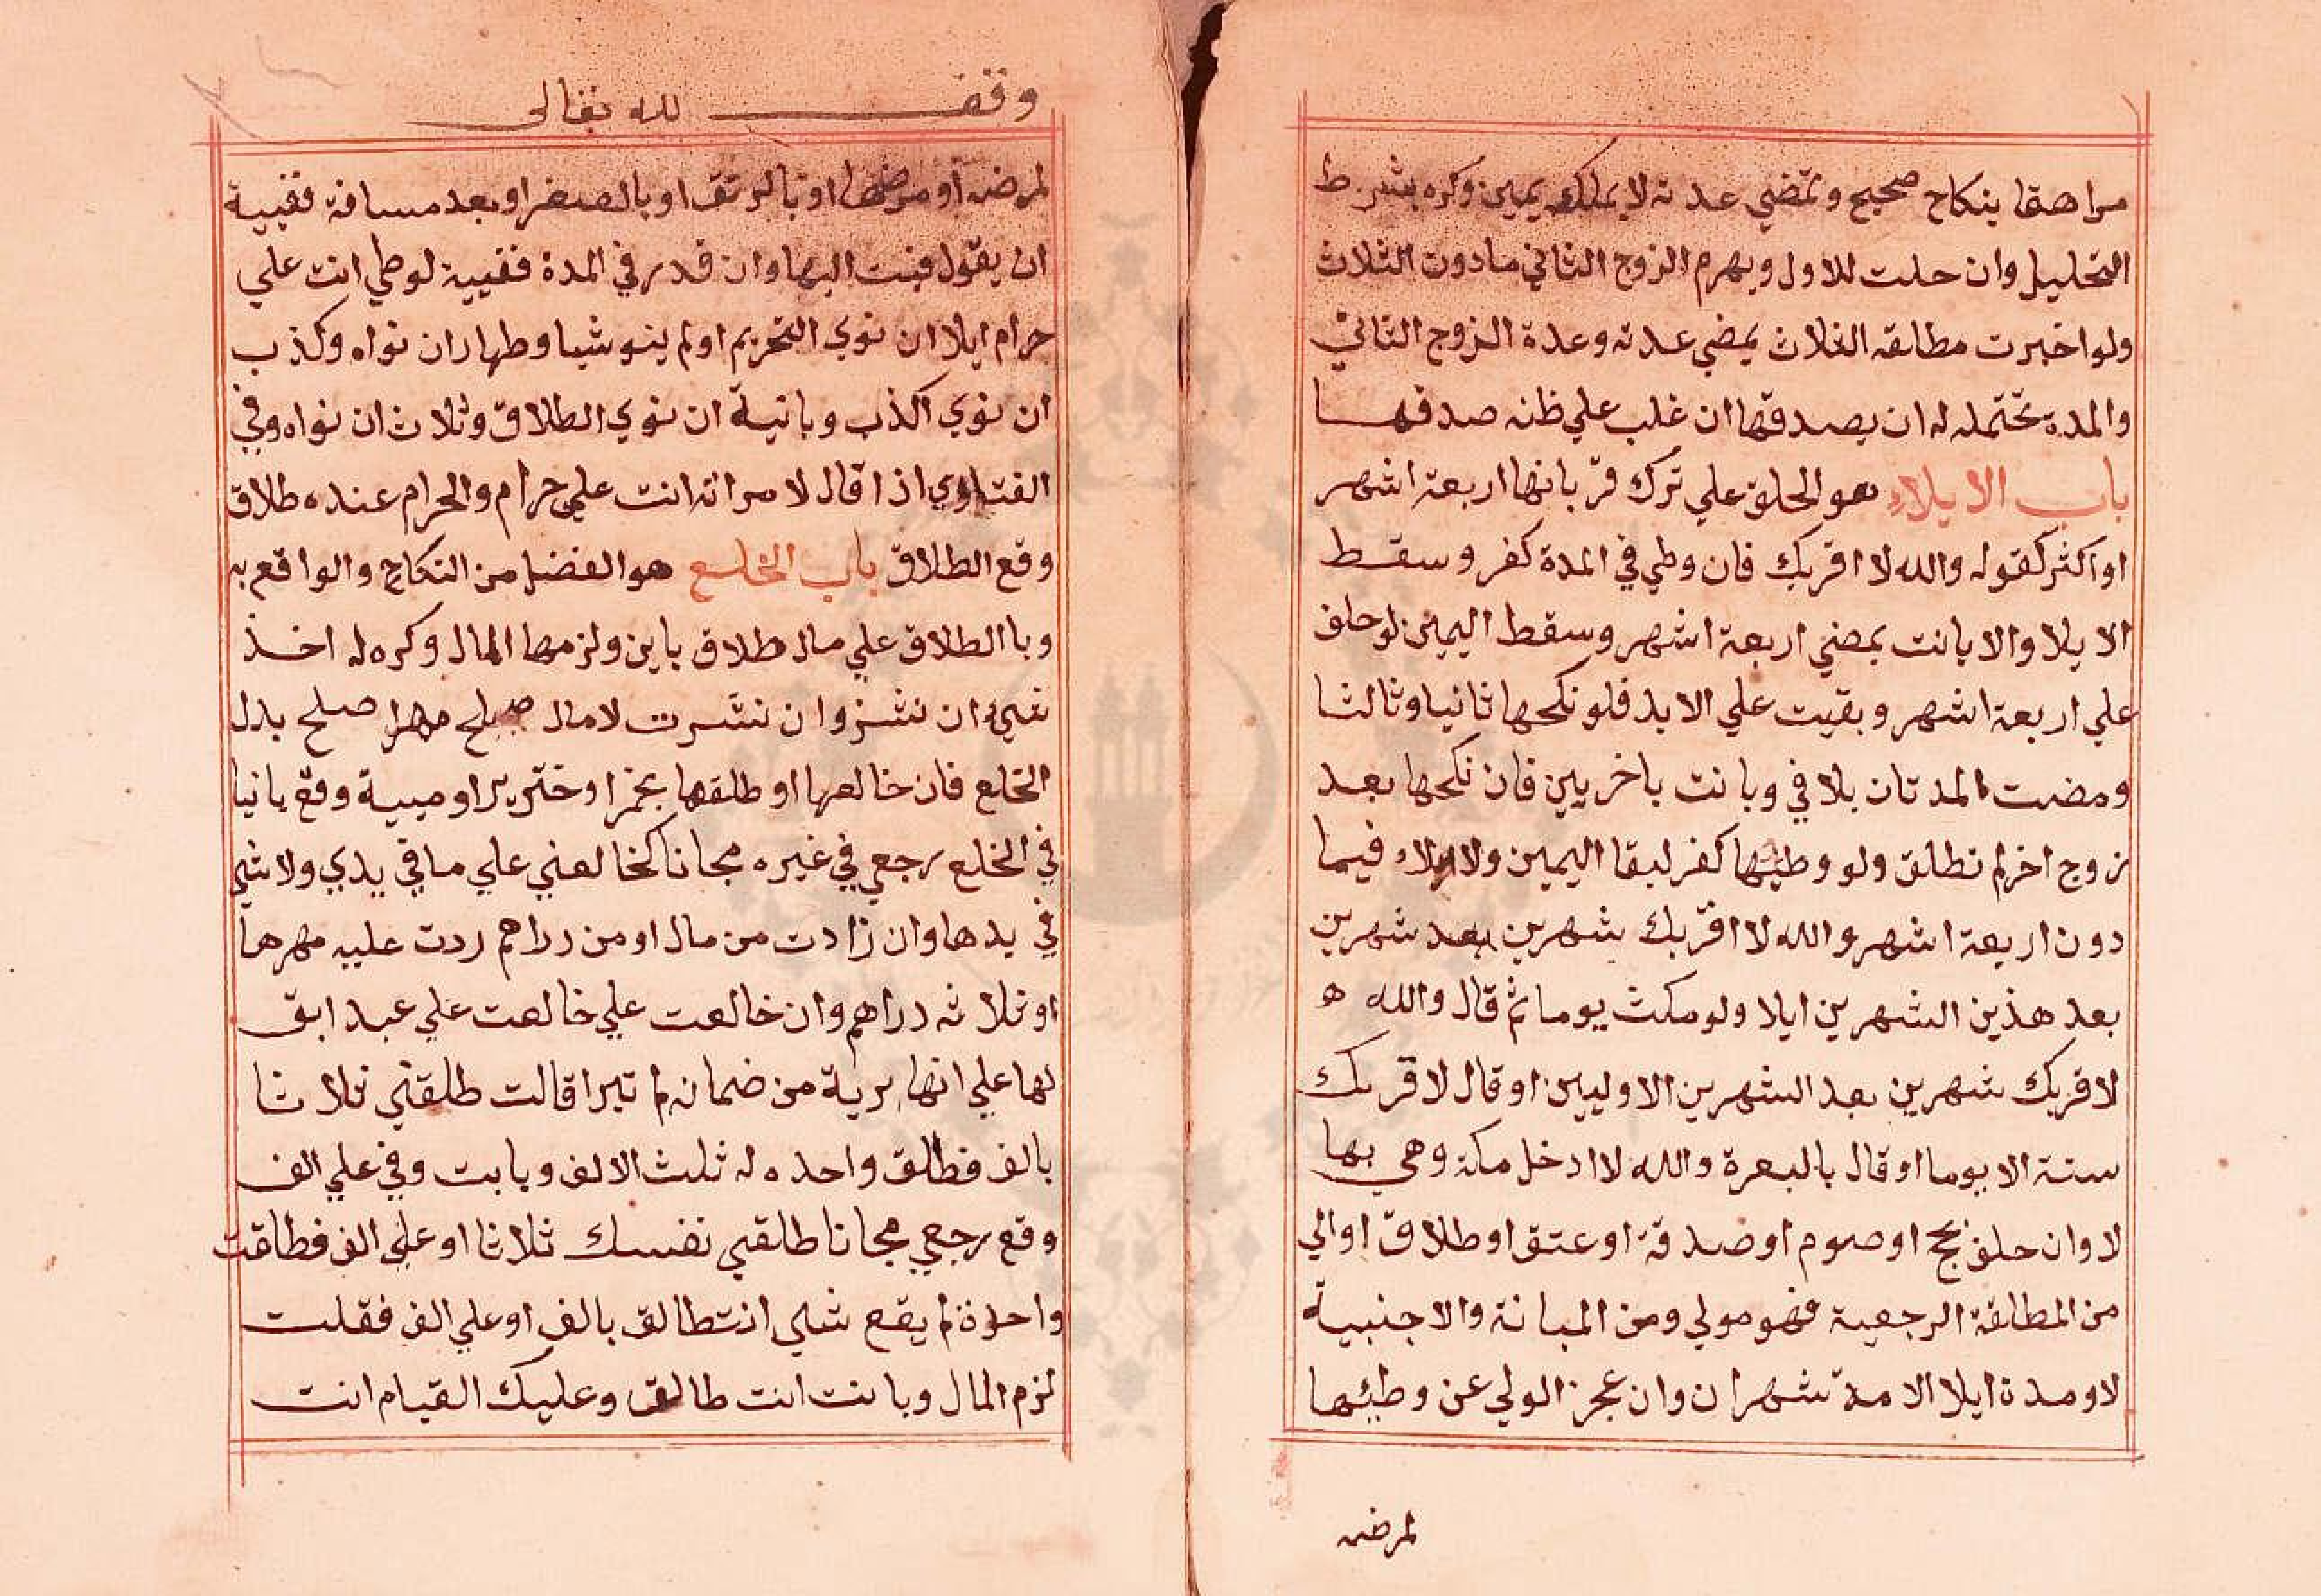 مراهقا بنكاح صحيح وتمضي عدته لا بملك يمين وكره بشرط
التحليل وان حلت للاول ويهرم الزوج الثاني مادون الثلاث
ولو اخبرت مطلقه الثلاث بمضي عدته وعدة الزوج الثاني
والمدة تحتمله له ان يصدقها ان غلب علي ظنه صدقها
باب الايلاء هو الحلف علي ترك قربانها اربعة اشهر
او اكثر كقوله والله لا اقربك فان وطي في المدة كفر وسقط
الايلا والا بانت بمضي اربعة اشهر وسقط اليمين لو حلف
علي اربعة اشهر وبقيت علي الابد فلو نكحها ثانيا وثالثا
ومضت المدتان بلا في وبانت باخريين فان نكحها بعد
زوج اخر لم تطلق ولو وطيها كفر لبقا اليمين ولا ايلاء فيما
دون اربعة اشهر والله لا اقربك شهرين بعد شهرين
بعد هذين الشهرين ايلا ولو مكث يوما ثم قال والله ه
لا قربك شهرين بعد الشهرين الاوليين او قال لا قربك
سنة الا يوما او قال بالبصرة والله لا ادخل مكة وهي بها
لا وان حلف بحج او صوم او صدقة او عتق او طلاق او الي
من المطلقة الرجعية فهو مولي ومن المبانة والاجنبية
لا ومدة ايلا الامة شهران وان عجز المولي عن وطئها
لمرضه
وقف لله تعالى
لمرضه او مرضها او بالرتق او بالصغر او بعد مسافة ففيية
ان يقول فيت اليها وان قدر في المدة ففيية لوطي انت علي
حرام ايلا ان نوي التحريم او لم ينو شيا وظهار ان نواه وكذب
ان نوي الكذب وبانية ان نوي الطلاق وثلاث ان نواه وفي
الفتاوي اذا قال لامراته انت علي حرام والحرام عنده طلاق
وقع الطلاق باب الخلع هو الفصل من النكاح والواقع به
وبا الطلاق علي مال طلاق باين ولزمها المال وكره له اخذ
شيء ان نشز وان نشزت لا مال صلح مهرا صلح بدل
الخلع فان خالعها او طلقها بخمر او خنزير او ميية وقع بانيا
في الخلع رجعي في غيره مجانا كخالعني علي ما في يدي ولا شي
في يدها وان زادت من مال او من دراهم ردت عليه مهرها
او ثلاثه دراهم وان خالعت علي خالعت علي عبد ابق
لها علي انها برية من ضمانه لم تبرا قالت طلقني ثلاثا
بالف فطلق واحده له ثلث الالف وبانت وفي علي الف
وقع رجعي مجانا طلقي نفسك ثلاثا او علي الف فطلقت
واحدة لم يقع شي انت طالق بالف او علي الف فقلت
لزم المال وبانت انت طالق وعليك القيام انت